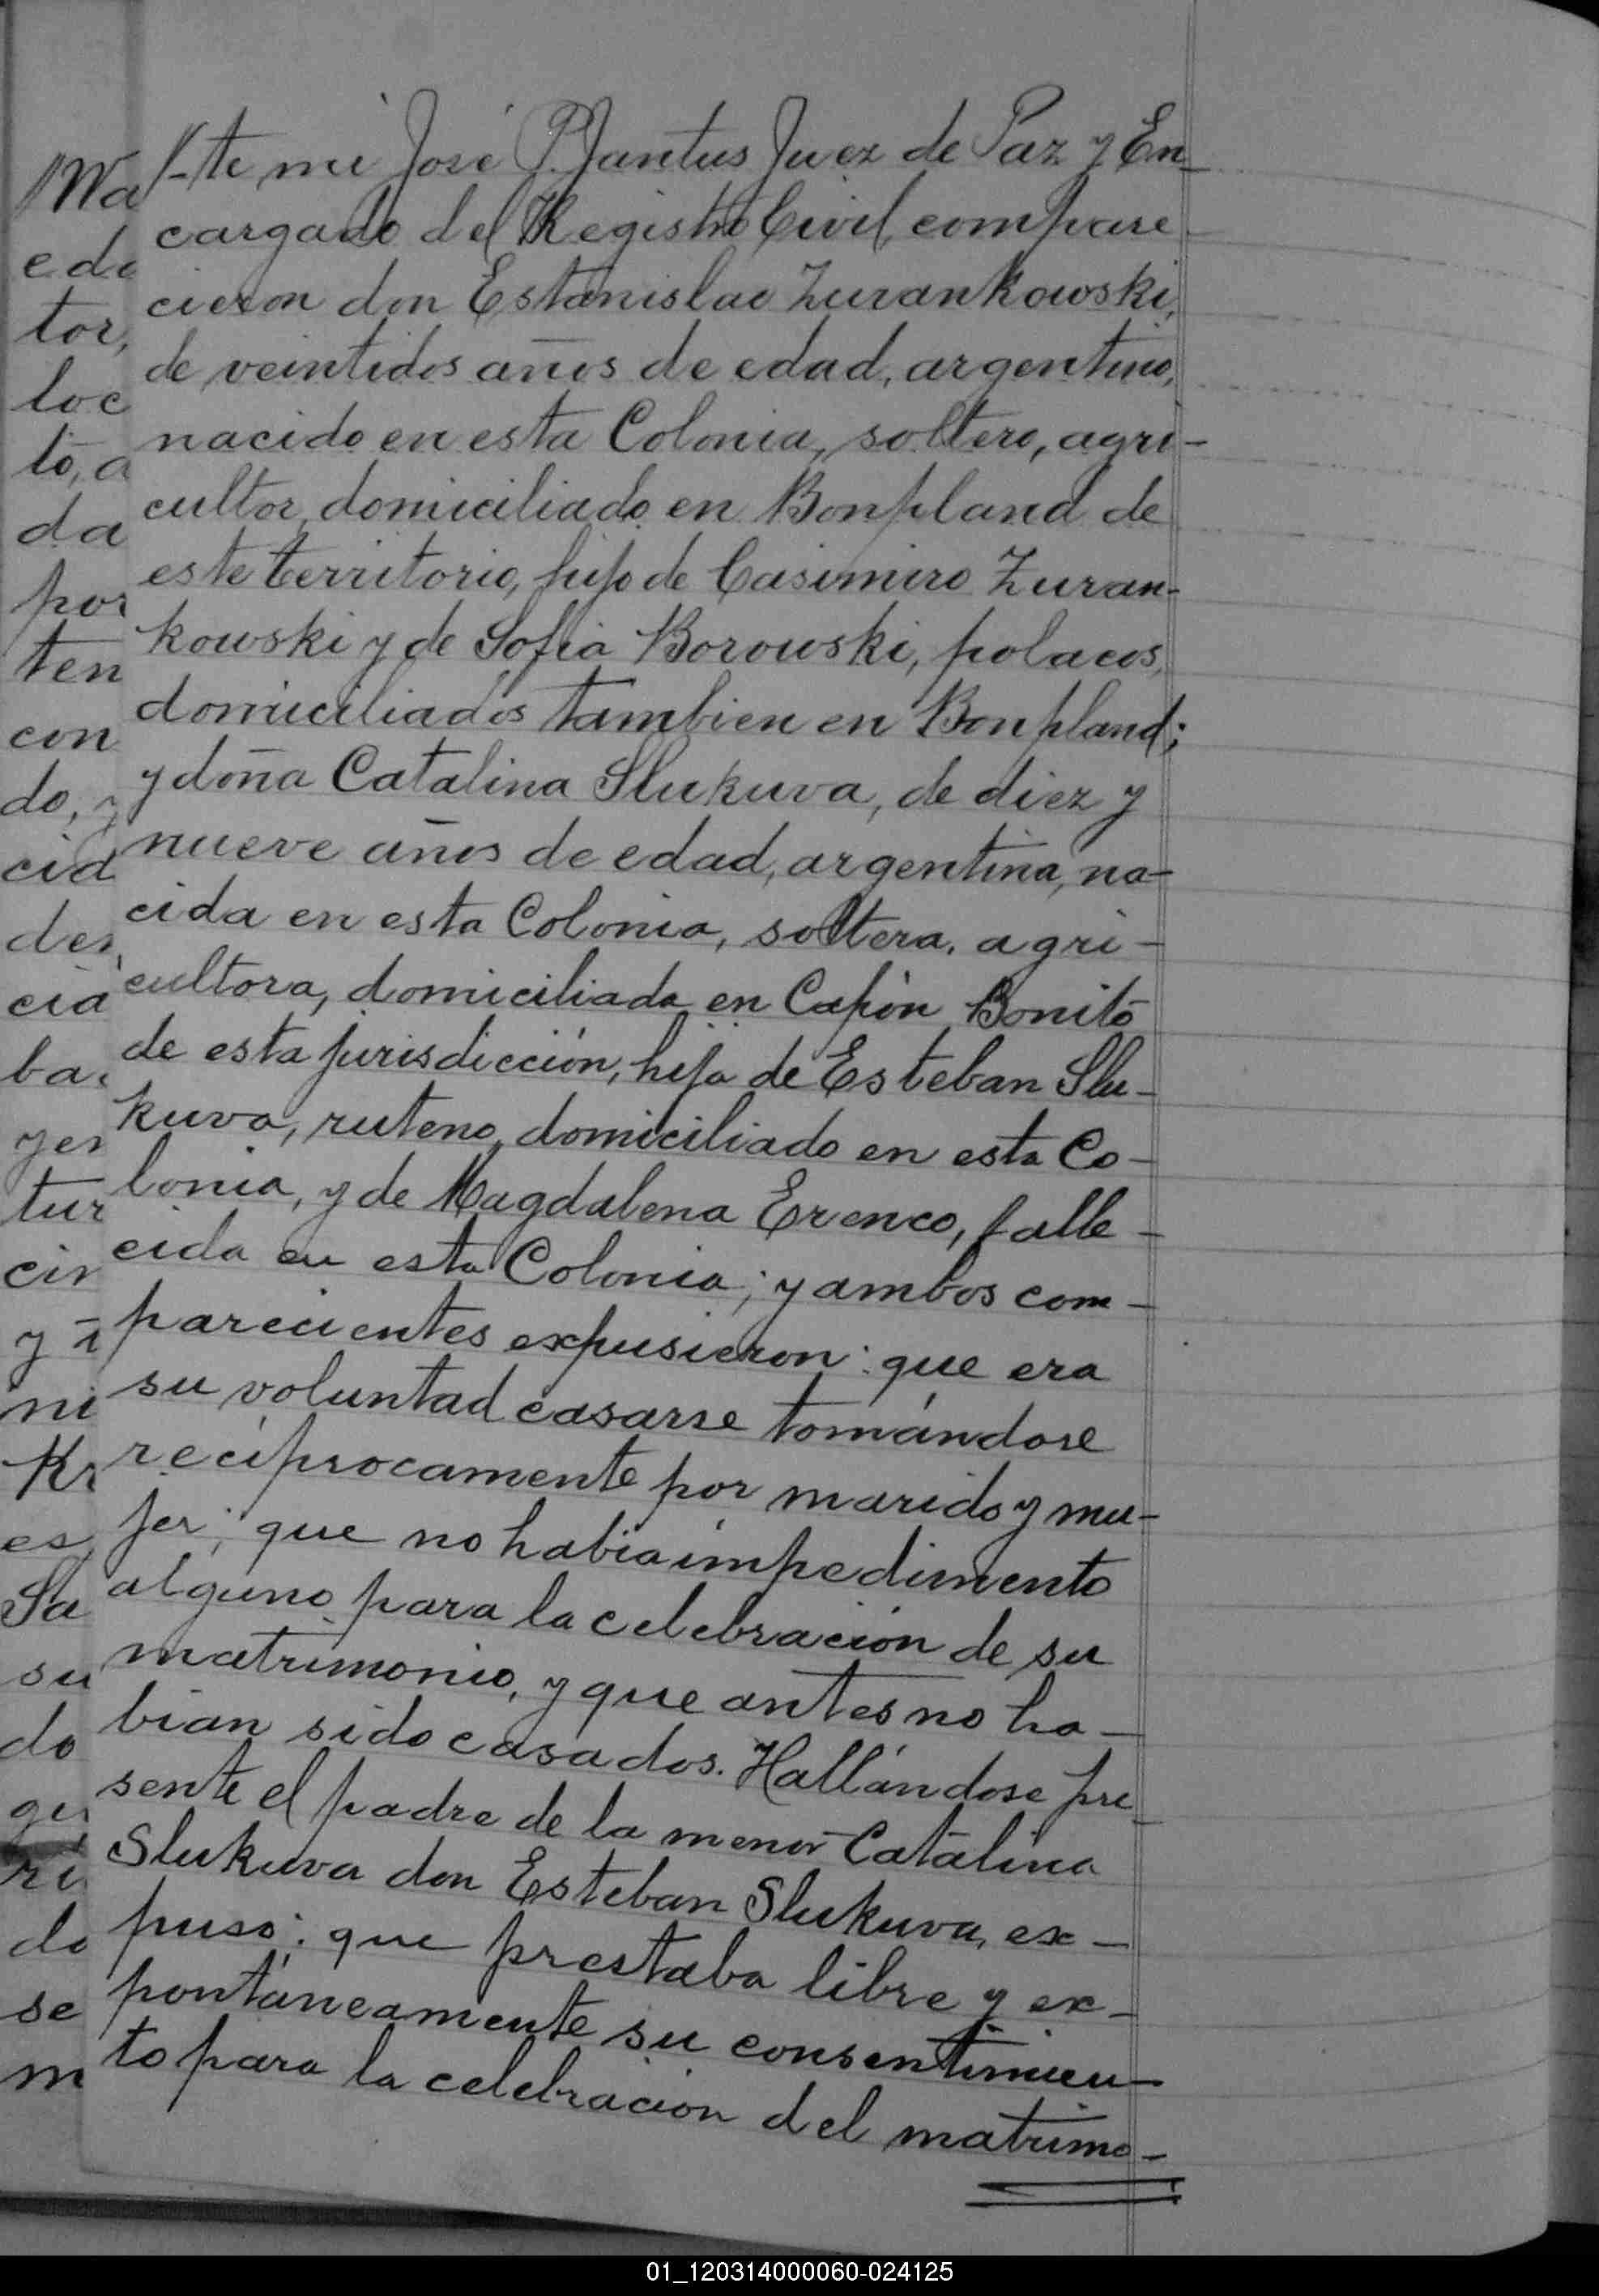 -te mi José P. Jantus Juez de Paz y En-
cargado del Registro Civil, compare-
cieron don Estanislao Zurankowski,
de veintidos años de edad, argentino,
nacido en esta Colonia, soltero, agri-
cultor, domiciliado en Bonpland de
este territorio, hijo de Casimiro Zuran-
kowski y de Sofia Borowski, polacos,
domiciliados tambien en Bonpland;
y doña Catalina Slukuva, de diez y
nueve años de edad, argentina, na-
cida en esta Colonia, soltera, agri-
cultora, domiciliada en Capón Bonito
de esta jurisdicción, hija de Esteban Slu-
kuva, ruteno, domiciliado en esta Co-
lonia, y de Magdalena Erenco, falle-
cida en esta Colonia; y ambos com-
parecientes expusieron: que era
su voluntad casarse tomándose
recíprocamente por marido y mu-
jer; que no habia impedimento
alguno para la celebración de su
matrimonio, y que antes no ha-
bian sido casados. Hallándose pre-
sente el padre de la menor Catalina
Slukuva don Esteban Slukuva, ex-
puso: que prestaba libre y ex-
pontáneamente su consentimien-
to para la celebración del matrimo-
01_120314000060-024125